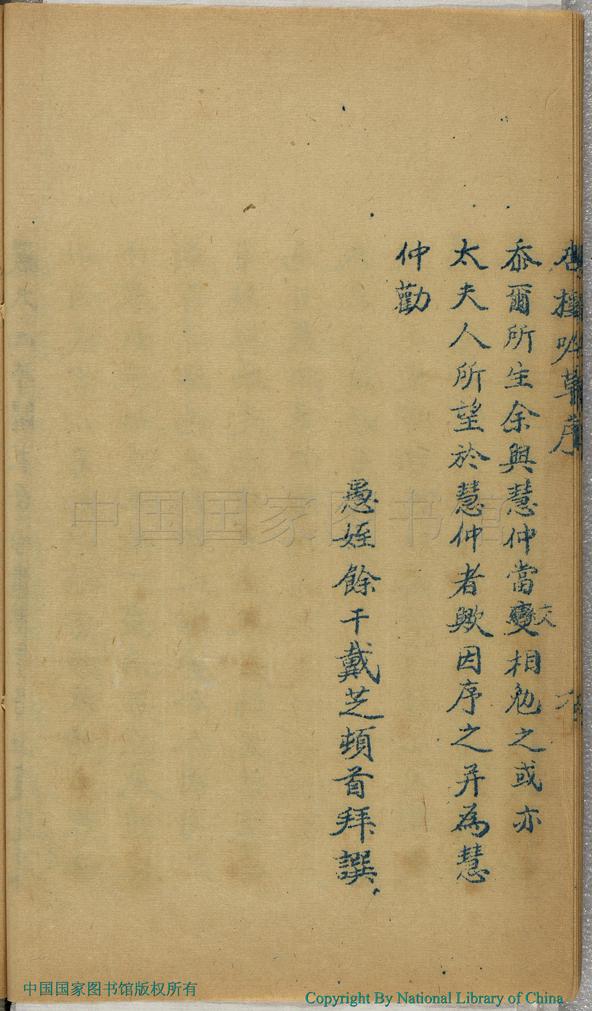 吟草序
忝爾所生余與慧仲當變相勉之或亦
交
太夫人所望於慧仲者歟因序之并為慧
仲勸
愚姪餘干戴芝頓首拜譔
中国国家图书馆
中国国家图书馆版权所有
Copyright By National Library of China